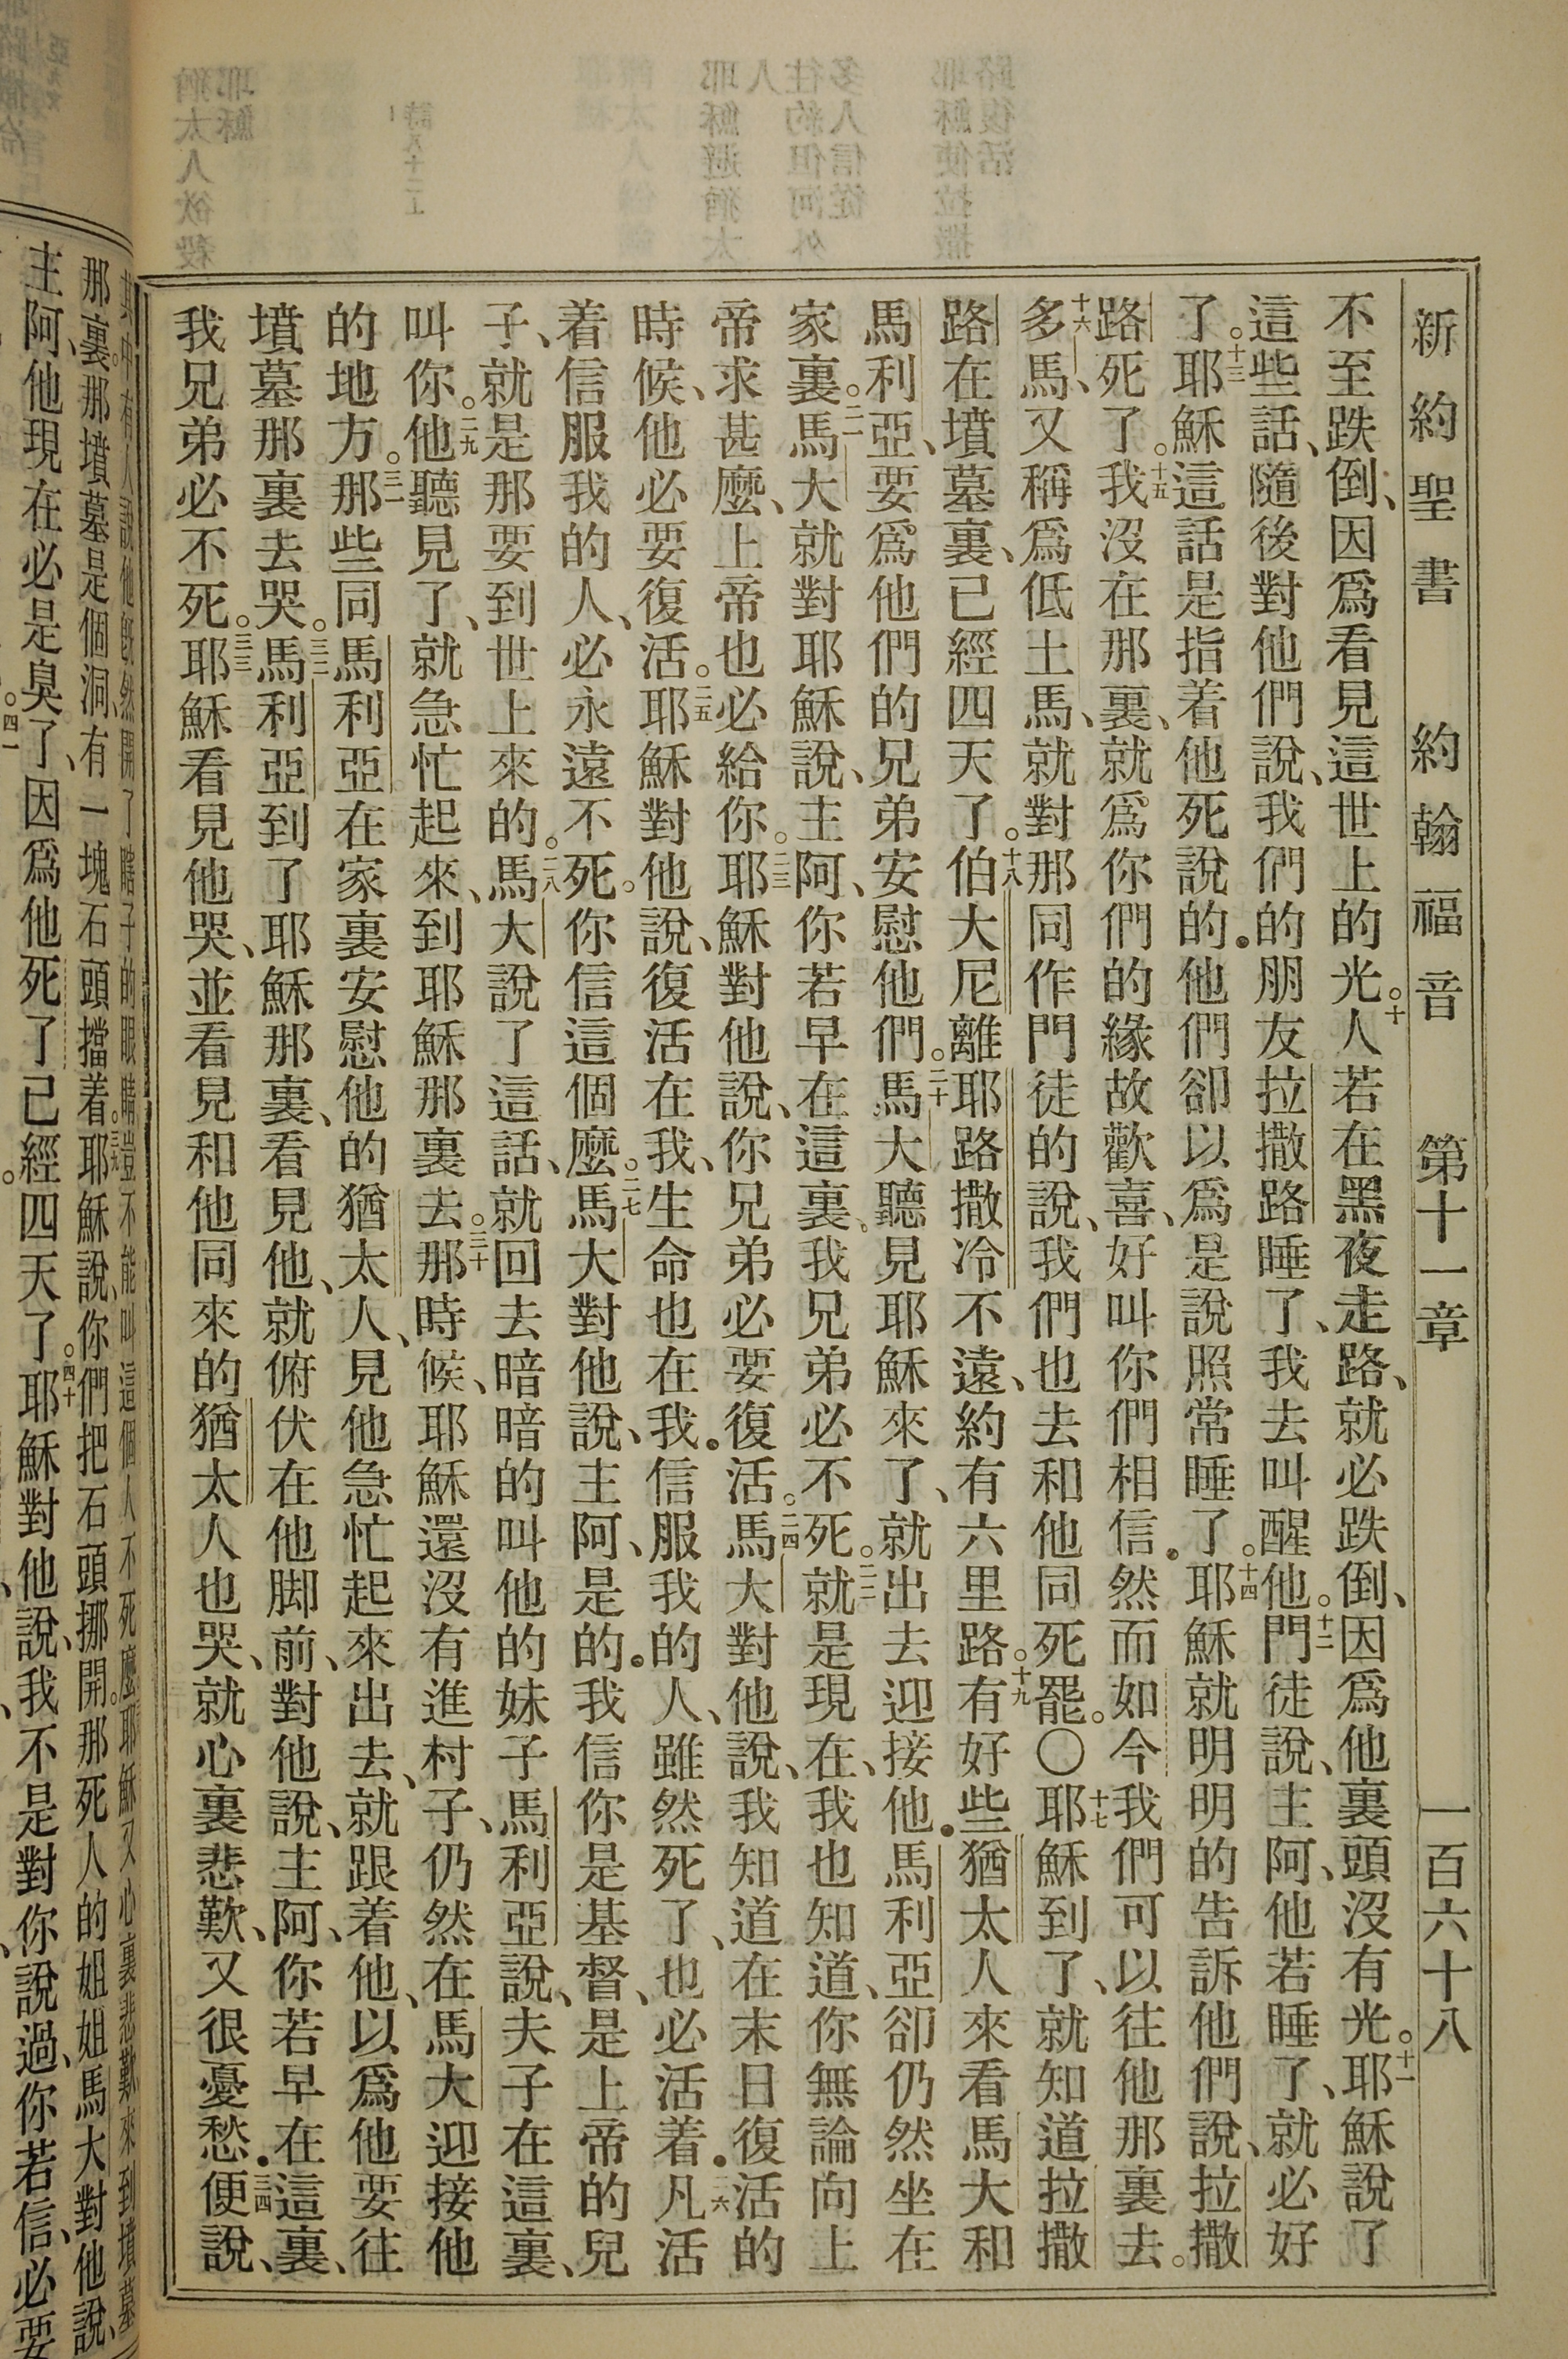 新約聖書　約翰福音　第十一章　一百六十八
不至跌倒、因爲看見這世上的光。十人若在黑夜走路、就必跌倒、因爲他裏頭沒有光。十一耶穌說了
這些話、隨後對他們說、我們的朋友拉撒路睡了、我去叫醒他。十二門徒說、主阿、他若睡了、就必好
了。十三耶穌這話是指着他死說的.他們卻以爲是說照常睡了。十四耶穌就明明的告訴他們說、拉撒
路死了。十五我沒在那裏、就爲你們的緣故歡喜、好叫你們相信.然而如今我們可以往他那裏去。
十六多馬、又稱爲低土馬、就對那同作門徒的說、我們也去和他同死罷。〇十七耶穌到了、就知道拉撒
路在墳墓裏、已經四天了。十八伯大尼離耶路撒冷不遠、約有六里路。十九有好些猶太人來看馬大和
馬利亞、要爲他們的兄弟安慰他們。二十馬大聽見耶穌來了、就出去迎接他.馬利亞卻仍然坐在
家裏。二一馬大就對耶穌說、主阿、你若早在這裏、我兄弟必不死。二二就是現在、我也知道、你無論向上
帝求甚麼、上帝也必給你。二三耶穌對他說、你兄弟必要復活。二四馬大對他說、我知道在末日復活的
時候、他必要復活。二五耶穌對他說、復活在我、生命也在我.信服我的人、雖然死了、也必活着.二六凡活
着信服我的人、必永遠不死。你信這個麼。二七馬大對他說、主阿、是的.我信你是基督、是上帝的兒
子、就是那要到世上來的。二八馬大說了這話、就回去暗暗的叫他的妹子馬利亞說、夫子在這裏、
叫你。二九他聽見了、就急忙起來、到耶穌那裏去。三十那時候、耶穌還沒有進村子、仍然在馬大迎接他
的地方。三一那些同馬利亞在家裏安慰他的猶太人、見他急忙起來出去、就跟着他、以爲他要往
墳墓那裏去哭。三二馬利亞到了耶穌那裏、看見他、就俯伏在他脚前、對他說、主阿、你若早在這裏、
我兄弟必不死。三三耶穌看見他哭、並看見和他同來的猶太人也哭、就心裏悲歎、又很憂愁.三四便說、
其中有人說他旣然開了瞎子的眼睛豈不能叫這個人不死麼耶穌又心裏悲歎來到墳墓
那裏。那墳墓是個洞、有一塊石頭擋着。三九耶穌說、你們把石頭挪開。那死人的姐姐馬大對他說、
主阿、他現在必是臭了、因爲他死了已經四天了。四十耶穌對他說、我不是對你說過、你若信、必要